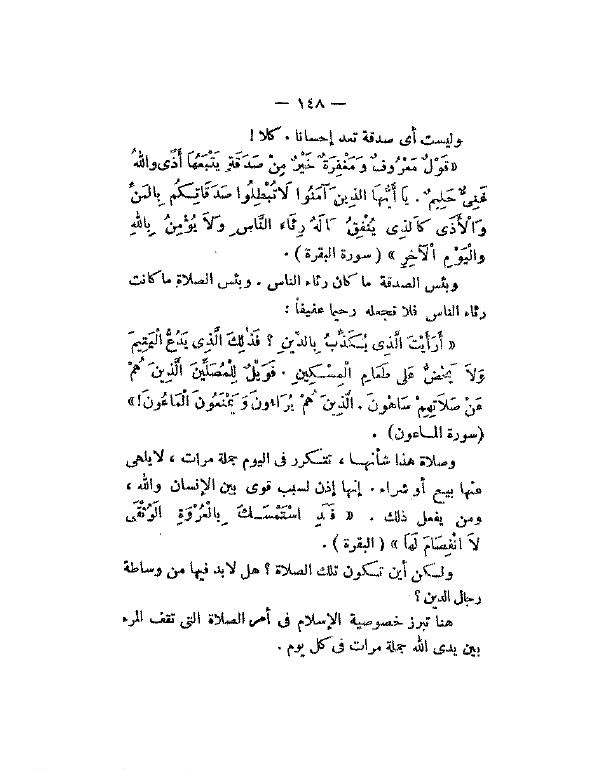 — ١٤٨ —
وليست أى صدقة تعد إحسانا . كلا !
« قَوْلٌ مَعْرُوفٌ وَمَغْفِرَةٌ خَيْرٌ مِنْ صَدَقَةٍ يَتْبَعُهَا أَذًى وَاللهُ
غَنِىٌّ حَلِيمٌ . يَا أَيُّهَا الَّذِينَ آمَنُوا لَا تُبْطِلُوا صَدَقَاتِكُم بِالْمَنِّ
وَالْأَذَى كَالَّذِى يُنْفِقُ مَالَهُ رِئَاءَ النَّاسِ وَلَا يُؤْمِنُ بِاللهِ
وَالْيَوْمِ الْآخِرِ » ( سورة البقرة ) .
وبئس الصدقة ما كان رئاء الناس . وبئس الصلاة ما كانت
رئاء الناس فلا تجعله رحيما عفيفاً :
« أَرَأَيْتَ الَّذِى يُكَذِّبُ بِالدِّينِ ؟ فَذَٰلِكَ الَّذِى يَدُعُّ الْيَتِيمَ
وَلَا يَحُضُّ عَلَى طَعَامِ الْمِسْكِينِ . فَوَيْلٌ لِلْمُصَلِّينَ الَّذِينَ هُمْ
عَنْ صَلَاتِهِمْ سَاهُونَ . الَّذِينَ هُمْ يُرَاءُونَ وَيَمْنَعُونَ الْمَاعُونَ ! »
(سورة الماعون) .
وصلاة هذا شأنها ، تتكرر فى اليوم جملة مرات ، لايلهى
عنها بيع أو شراء . إنها إذن لسبب قوى بين الإنسان والله ،
ومن يفعل ذلك . « فَقَدِ اسْتَمْسَكَ بِالْعُرْوَةِ الْوُثْقَى
لَا انْفِصَامَ لَهَا » ( البقرة ) .
ولكن أين تكون تلك الصلاة ؟ هل لابد فيها من وساطة
رجال الدين ؟
هنا تبرز خصوصية الإسلام فى أمر الصلاة التى تقف المرء
بين يدى الله جملة مرات فى كل يوم .